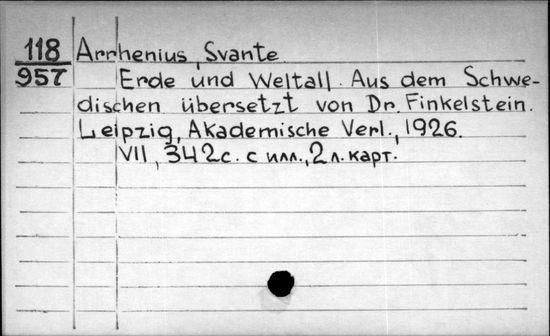 118 Arrhenius, Svante
957 Erde und Weltall. Aus dem Schwe-
dischen übersetzt von Dr. Finkelstein.
Leipzig, Akademische Verl., 1926.
VII, 342c. с илл., 2 л. карт.